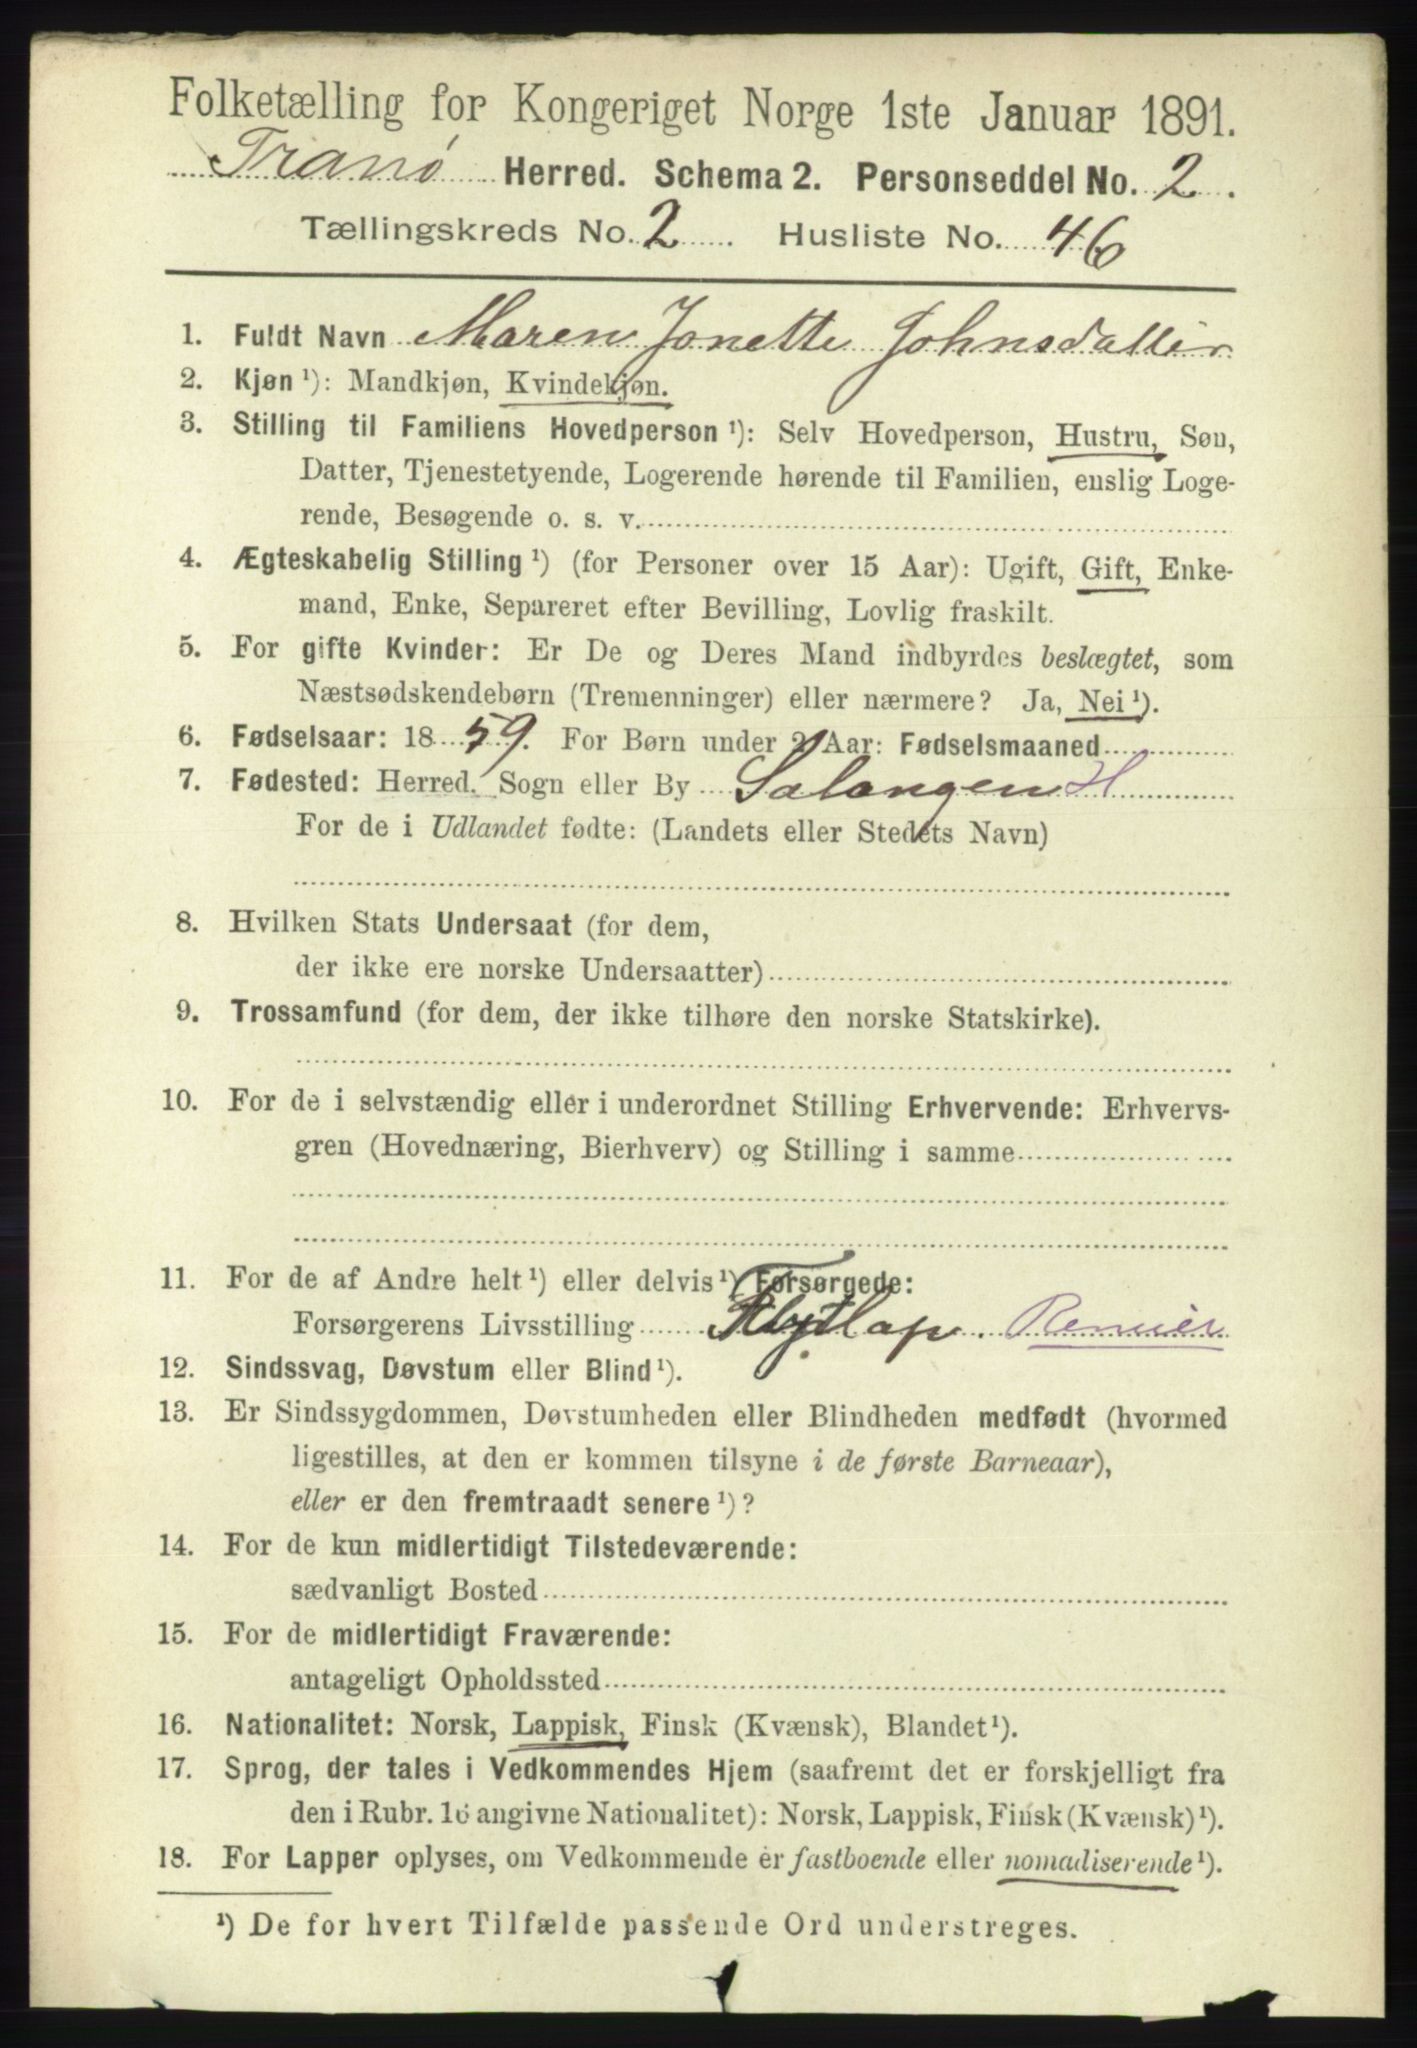 Folketælling for Kongeriget Norge 1ste Januar 1891.
Tranø Herred. Schema 2. Personseddel No. 2.
Tællingskreds No. 2 Husliste No. 46
1. Fuldt Navn Maren Jonette Johnsdatter
2. Kjøn ¹): Mandkjøn, Kvindekjøn.
3. Stilling til Familiens Hovedperson ¹): Selv Hovedperson, Hustru, Søn,
Datter, Tjenestetyende, Logerende hørende til Familien, enslig Loge-
rende, Besøgende o. s. v.
4. Ægteskabelig Stilling ¹) (for Personer over 15 Aar): Ugift, Gift, Enke-
mand, Enke, Separeret efter Bevilling, Lovlig fraskilt.
5. For gifte Kvinder: Er De og Deres Mand indbyrdes beslægtet, som
Næstsødskendebørn (Tremenninger) eller nærmere? Ja, Nei ¹).
6. Fødselsaar: 1859. For Børn under 2 Aar: Fødselsmaaned
7. Fødested: Herred, Sogn eller By Salangen H
For de i Udlandet fødte: (Landets eller Stedets Navn)
8. Hvilken Stats Undersaat (for dem,
der ikke ere norske Undersaatter)
9. Trossamfund (for dem, der ikke tilhøre den norske Statskirke).
10. For de i selvstændig eller i underordnet Stilling Erhvervende: Erhvervs-
gren (Hovednæring, Bierhverv) og Stilling i samme
11. For de af Andre helt ¹) eller delvis ¹) Forsørgede:
Forsørgerens Livsstilling Flytlap. Reneier
12. Sindssvag, Døvstum eller Blind ¹).
13. Er Sindssygdommen, Døvstumheden eller Blindheden medfødt (hvormed
ligestilles, at den er kommen tilsyne i de første Barneaar),
eller er den fremtraadt senere ¹)?
14. For de kun midlertidigt Tilstedeværende:
sædvanligt Bosted
15. For de midlertidigt Fraværende:
antageligt Opholdssted
16. Nationalitet: Norsk, Lappisk, Finsk (Kvænsk), Blandet ¹).
17. Sprog, der tales i Vedkommendes Hjem (saafremt det er forskjelligt fra
den i Rubr. 16 angivne Nationalitet): Norsk, Lappisk, Finsk (Kvænsk) ¹).
18. For Lapper oplyses, om Vedkommende er fastboende eller nomadiserende ¹).
¹) De for hvert Tilfælde passende Ord understreges.